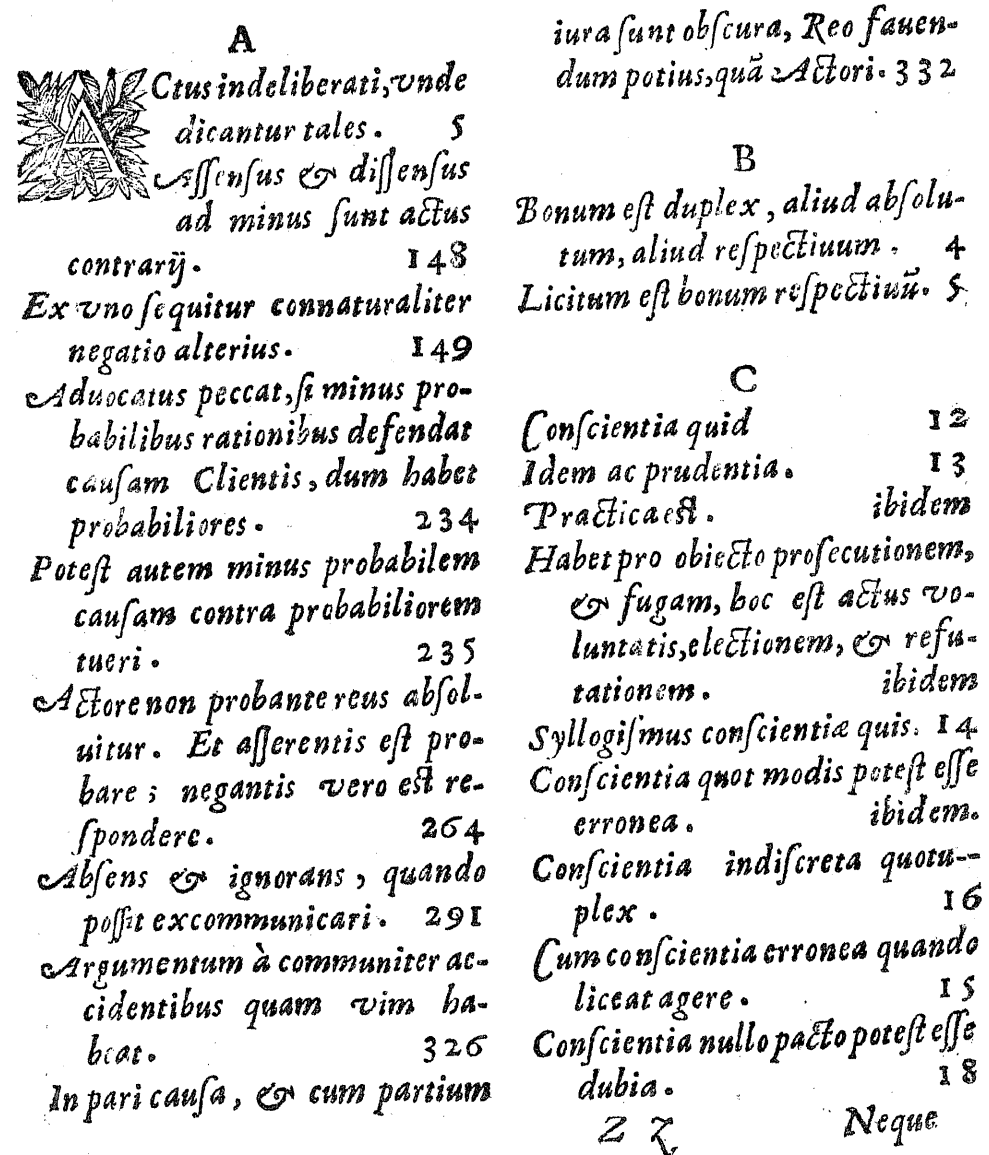 A
ACtus indeliberati, vnde
dicantur tales. 5
Aſſenſus & diſſenſus
ad minus ſunt actus
contrarij. 148
Ex vno ſequitur connaturaliter
negatio alterius. 149
Aduocatus peccat, ſi minus pro-
babilibus rationibus defendat
cauſam Clientis, dum habet
probabiliores. 234
Poteſt autem minus probabilem
cauſam contra probabiliorem
tueri. 235
Actore non probante reus abſol-
uitur. Et aſſerentis eſt pro-
bare; negantis vero eſt re-
ſpondere. 264
Abſens & ignorans, quando
poſſit excommunicari. 291
Argumentum à communiter ac-
cidentibus quam vim ha-
beat. 326
In pari cauſa, & cum partium
iura ſunt obſcura, Reo fauen-
dum potius, quã Actori. 332
B
Bonum eſt duplex, aliud abſolu-
tum, aliud reſpectiuum. 4
Licitum eſt bonum reſpectiuũ. 5
C
Conſcientia quid 12
Idem ac prudentia. 13
Practica eſt. ibidem
Habet pro obiecto proſecutionem,
& fugam, hoc eſt actus vo-
luntatis, electionem, & refu-
tationem. ibidem
Syllogiſmus conſcientiæ quis. 14
Conſcientia quot modis poteſt eſſe
erronea. ibidem.
Conſcientia indiſcreta quotu-
plex. 16
Cum conſcientia erronea quando
liceat agere. 15
Conſcientia nullo pacto poteſt eſſe
dubia. 18
Z z Neque